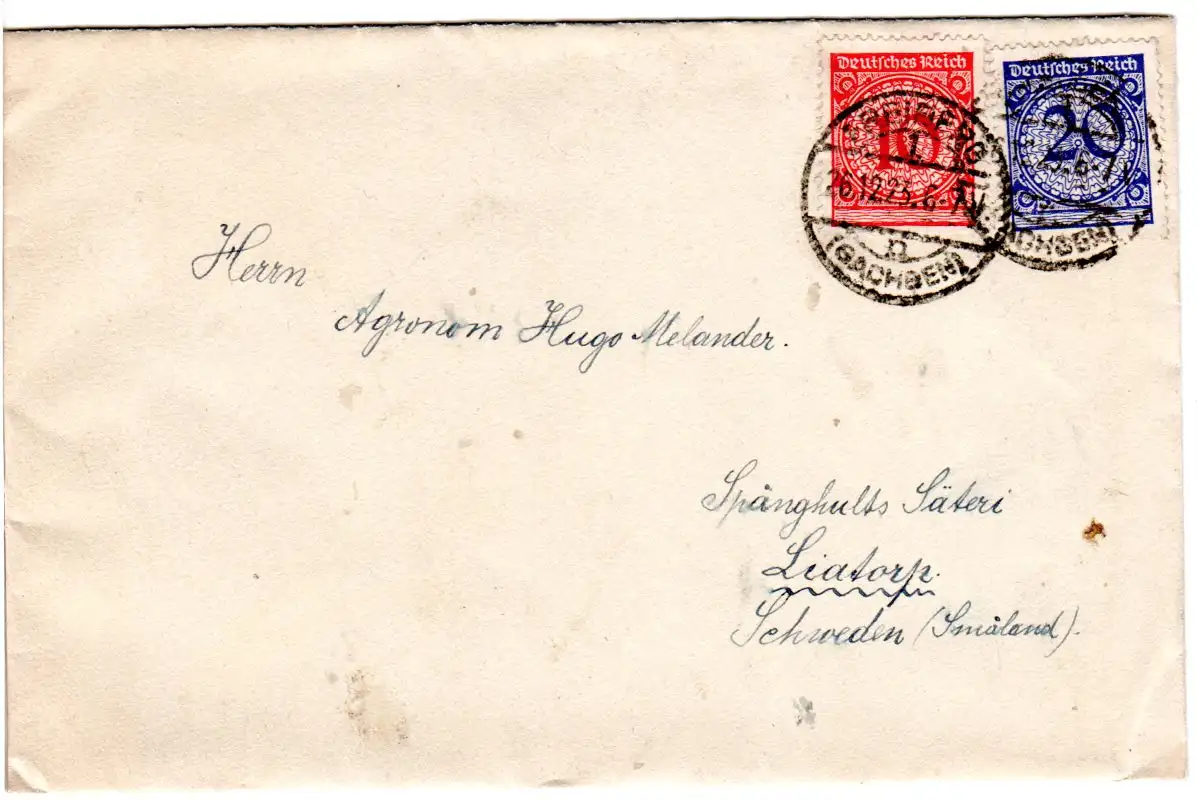 Deutsches Reich
10
Deutsches Reich
20
12.23. 6-7
n
(SACHSEN)
Herrn
Agronom Hugo Melander.
Spånghults Säteri
Liatorp.
Schweden (Småland).